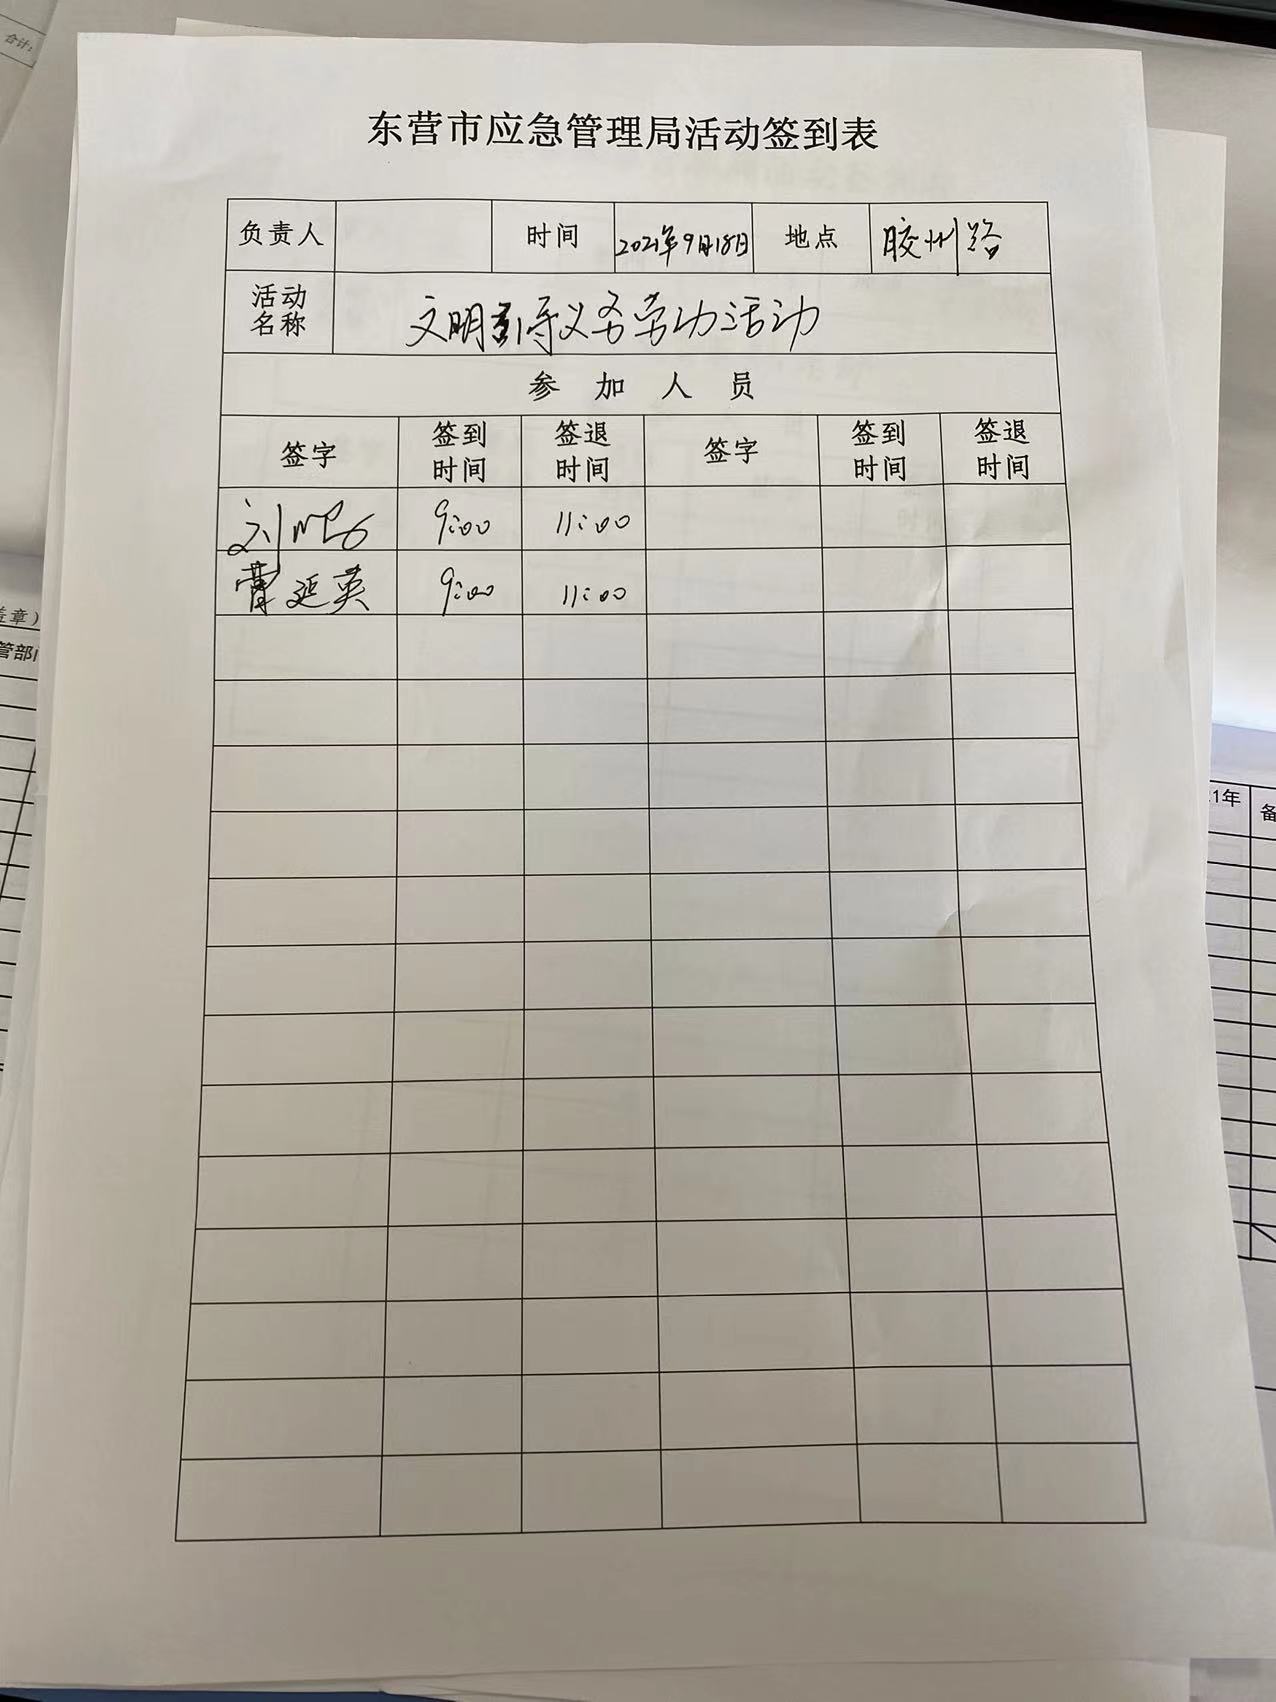 东营市应急管理局活动签到表
负责人 时间 2021年9月18日 地点 胶州路
活动名称 文明引导义务劳动活动
参加人员
签字 签到时间 签退时间 签字 签到时间 签退时间
刘 9:00 11:00
曹延英 9:00 11:00
合计:
盖章)
管部
1年 备